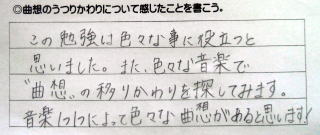 ◎曲想のうつりかわりについて感じたことを書こう。
この勉強は色々な事に役立つと
思いました。また、色々な音楽で
"曲想"の移りかわりを探してみます。
音楽1つ1つによって色々な曲想があると思います!